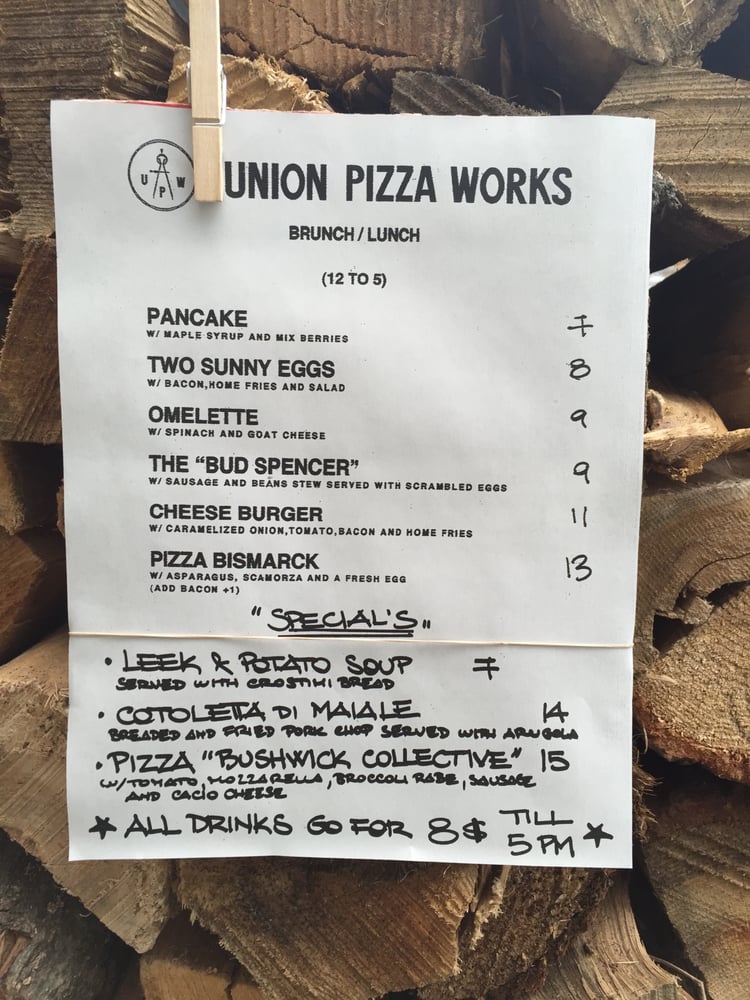 U P W
UNION PIZZA WORKS
BRUNCH / LUNCH
(12 TO 5)
PANCAKE 7
W/ MAPLE SYRUP AND MIX BERRIES
TWO SUNNY EGGS 8
W/ BACON,HOME FRIES AND SALAD
OMELETTE 9
W/ SPINACH AND GOAT CHEESE
THE “BUD SPENCER” 9
W/ SAUSAGE AND BEANS STEW SERVED WITH SCRAMBLED EGGS
CHEESE BURGER 11
W/ CARAMELIZED ONION,TOMATO,BACON AND HOME FRIES
PIZZA BISMARCK 13
W/ ASPARAGUS, SCAMORZA AND A FRESH EGG
(ADD BACON +1)
"SPECIAL'S"
• LEEK & POTATO SOUP 7
SERVED WITH CROSTINI BREAD
• COTOLETTA DI MAIALE 14
BREADED AND FRIED PORK CHOP SERVED WITH ARUGOLA
• PIZZA "BUSHWICK COLLECTIVE" 15
W/TOMATO, MOZZARELLA, BROCCOLI RABE, SAUSAGE
AND CACIO CHEESE
★ ALL DRINKS GO FOR 8$ TILL 5 PM ★